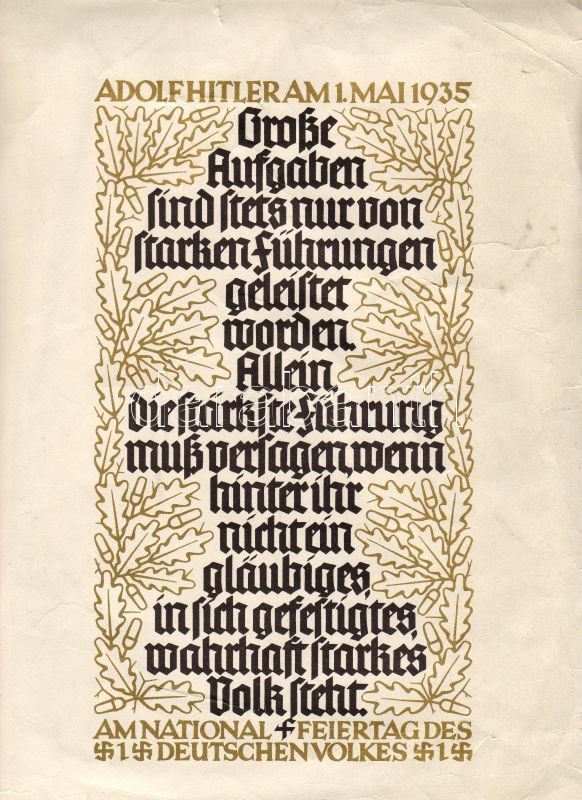 ADOLF HITLER AM 1. MAI 1935
Große
Aufgaben
sind stets nur von
starken Führungen
geleistet
worden.
Allein
die stärkste Führung
muß versagen, wenn
hinter ihr
nicht ein
gläubiges,
in sich gefestigtes,
wahrhaft starkes
Volk steht.
AM NATIONAL FEIERTAG DES
卐 1 卐 DEUTSCHEN VOLKES 卐 1 卐
darabanth